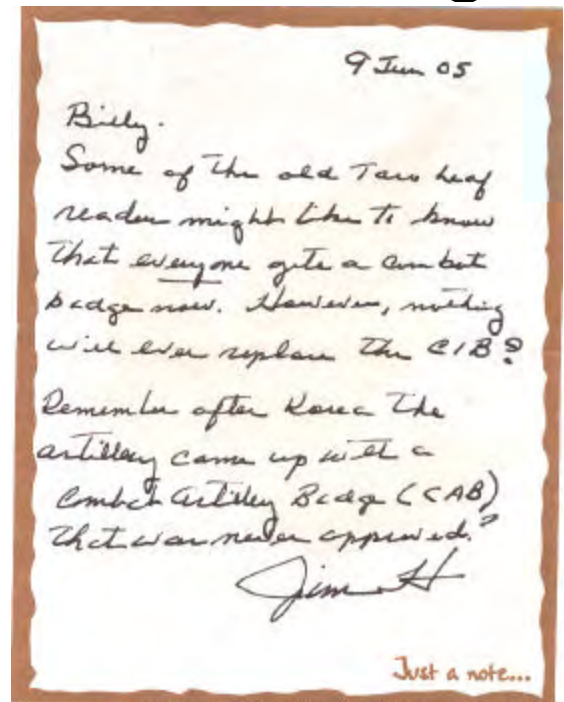 9 Jun 05
Billy.
Some of the old Taro Leaf
reader might like to know
that everyone gets a combat
badge now. However, nothing
will ever replace the CIB?
Remember after Korea the
artillery came up with a
Combat Artilley Badge (CAB)
that was never approved?
Jim H
Just a note...